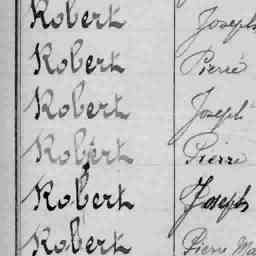 Robert Joseph
Robert Pierre
Robert Joseph
Robert Pierre
Robert Joseph
Robert Pierre Ma